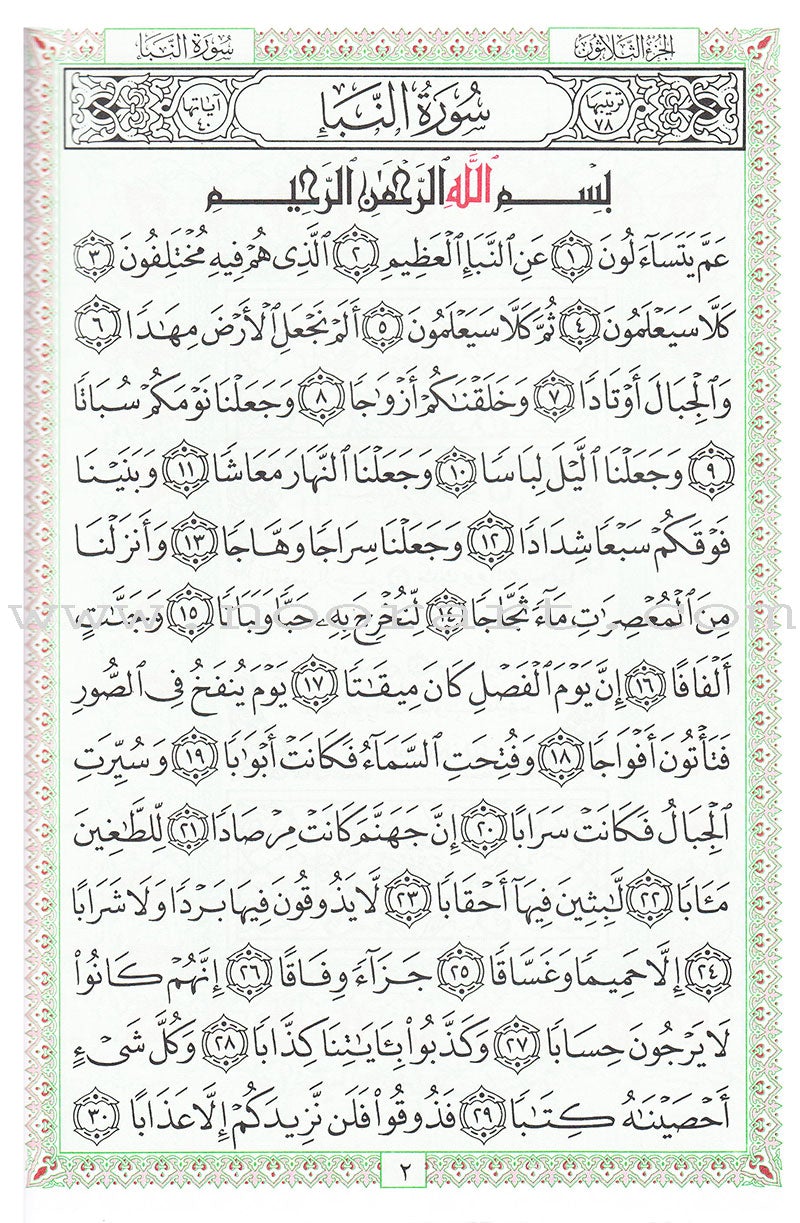 سُورَةُ النَّبَإِ
الجزء الثلاثون
آياتها ٤٠
سُورَةُ النَّبَإِ
ترتيبها ٧٨
بِسْمِ ٱللَّهِ ٱلرَّحْمَٰنِ ٱلرَّحِيمِ
عَمَّ يَتَسَآءَلُونَ ١ عَنِ ٱلنَّبَإِ ٱلْعَظِيمِ ٢ ٱلَّذِى هُمْ فِيهِ مُخْتَلِفُونَ ٣
كَلَّا سَيَعْلَمُونَ ٤ ثُمَّ كَلَّا سَيَعْلَمُونَ ٥ أَلَمْ نَجْعَلِ ٱلْأَرْضَ مِهَٰدًا ٦
وَٱلْجِبَالَ أَوْتَادًا ٧ وَخَلَقْنَٰكُمْ أَزْوَٰجًا ٨ وَجَعَلْنَا نَوْمَكُمْ سُبَاتًا
٩ وَجَعَلْنَا ٱلَّيْلَ لِبَاسًا ١٠ وَجَعَلْنَا ٱلنَّهَارَ مَعَاشًا ١١ وَبَنَيْنَا
فَوْقَكُمْ سَبْعًا شِدَادًا ١٢ وَجَعَلْنَا سِرَاجًا وَهَّاجًا ١٣ وَأَنزَلْنَا
مِنَ ٱلْمُعْصِرَٰتِ مَآءً ثَجَّاجًا ١٤ لِّنُخْرِجَ بِهِۦ حَبًّا وَنَبَاتًا ١٥ وَجَنَّٰتٍ
أَلْفَافًا ١٦ إِنَّ يَوْمَ ٱلْفَصْلِ كَانَ مِيقَٰتًا ١٧ يَوْمَ يُنفَخُ فِى ٱلصُّورِ
فَتَأْتُونَ أَفْوَاجًا ١٨ وَفُتِحَتِ ٱلسَّمَآءُ فَكَانَتْ أَبْوَٰبًا ١٩ وَسُيِّرَتِ
ٱلْجِبَالُ فَكَانَتْ سَرَابًا ٢٠ إِنَّ جَهَنَّمَ كَانَتْ مِرْصَادًا ٢١ لِّلطَّٰغِينَ
مَـَٔابًا ٢٢ لَّٰبِثِينَ فِيهَآ أَحْقَابًا ٢٣ لَّا يَذُوقُونَ فِيهَا بَرْدًا وَلَا شَرَابًا
٢٤ إِلَّا حَمِيمًا وَغَسَّاقًا ٢٥ جَزَآءً وِفَاقًا ٢٦ إِنَّهُمْ كَانُوا۟
لَا يَرْجُونَ حِسَابًا ٢٧ وَكَذَّبُوا۟ بِـَٔايَٰتِنَا كِذَّابًا ٢٨ وَكُلَّ شَىْءٍ
أَحْصَيْنَٰهُ كِتَٰبًا ٢٩ فَذُوقُوا۟ فَلَن نَّزِيدَكُمْ إِلَّا عَذَابًا ٣٠
٢
www.noorart.com